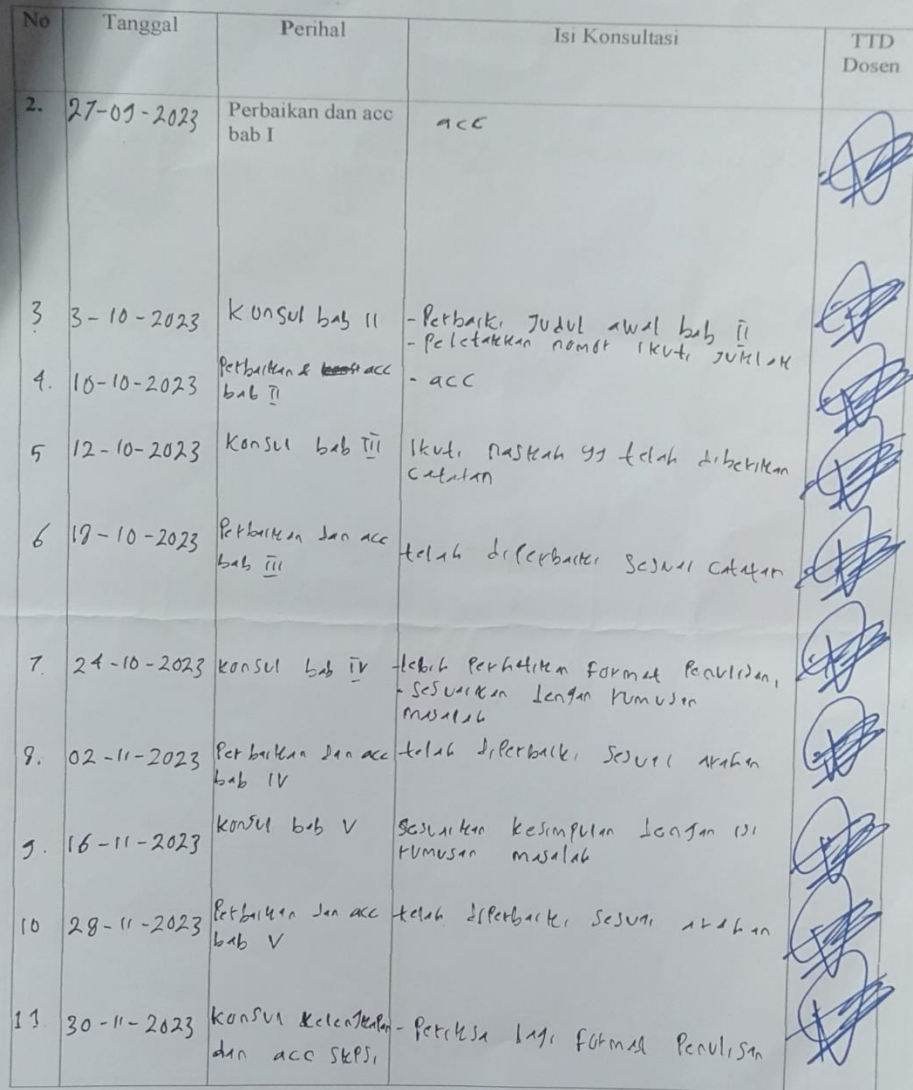 No Tanggal Perihal Isi Konsultasi TTD
Dosen
2. 27-09-2023 Perbaikan dan acc acc
bab I
3. 3-10-2023 Konsul bab II - Perbaiki Judul awal bab II
- Peletakkan nomor ikuti
4. 10-10-2023 Perbaikan & acc - acc
bab II
5 12-10-2023 Konsul bab III Ikuti naskah yg telah diberikan
catatan
6 18-10-2023 Perbaikan dan acc telah diperbaiki sesuai catatan
bab III
7. 24-10-2023 konsul bab IV - lebih Perhatikan format Penulisan,
- sesuaikan dengan rumusan
masalah
8. 02-11-2023 Perbaikan dan acc telah diperbaiki sesuai arahan
bab IV
9. 16-11-2023 konsul bab V Sesuaikan kesimpulan dengan isi
rumusan masalah
10 28-11-2023 Perbaikan dan acc telah diperbaiki sesuai arahan
bab V
11. 30-11-2023 konsul kelengkapan - Periksa lagi format Penulisan
dan acc skpsi